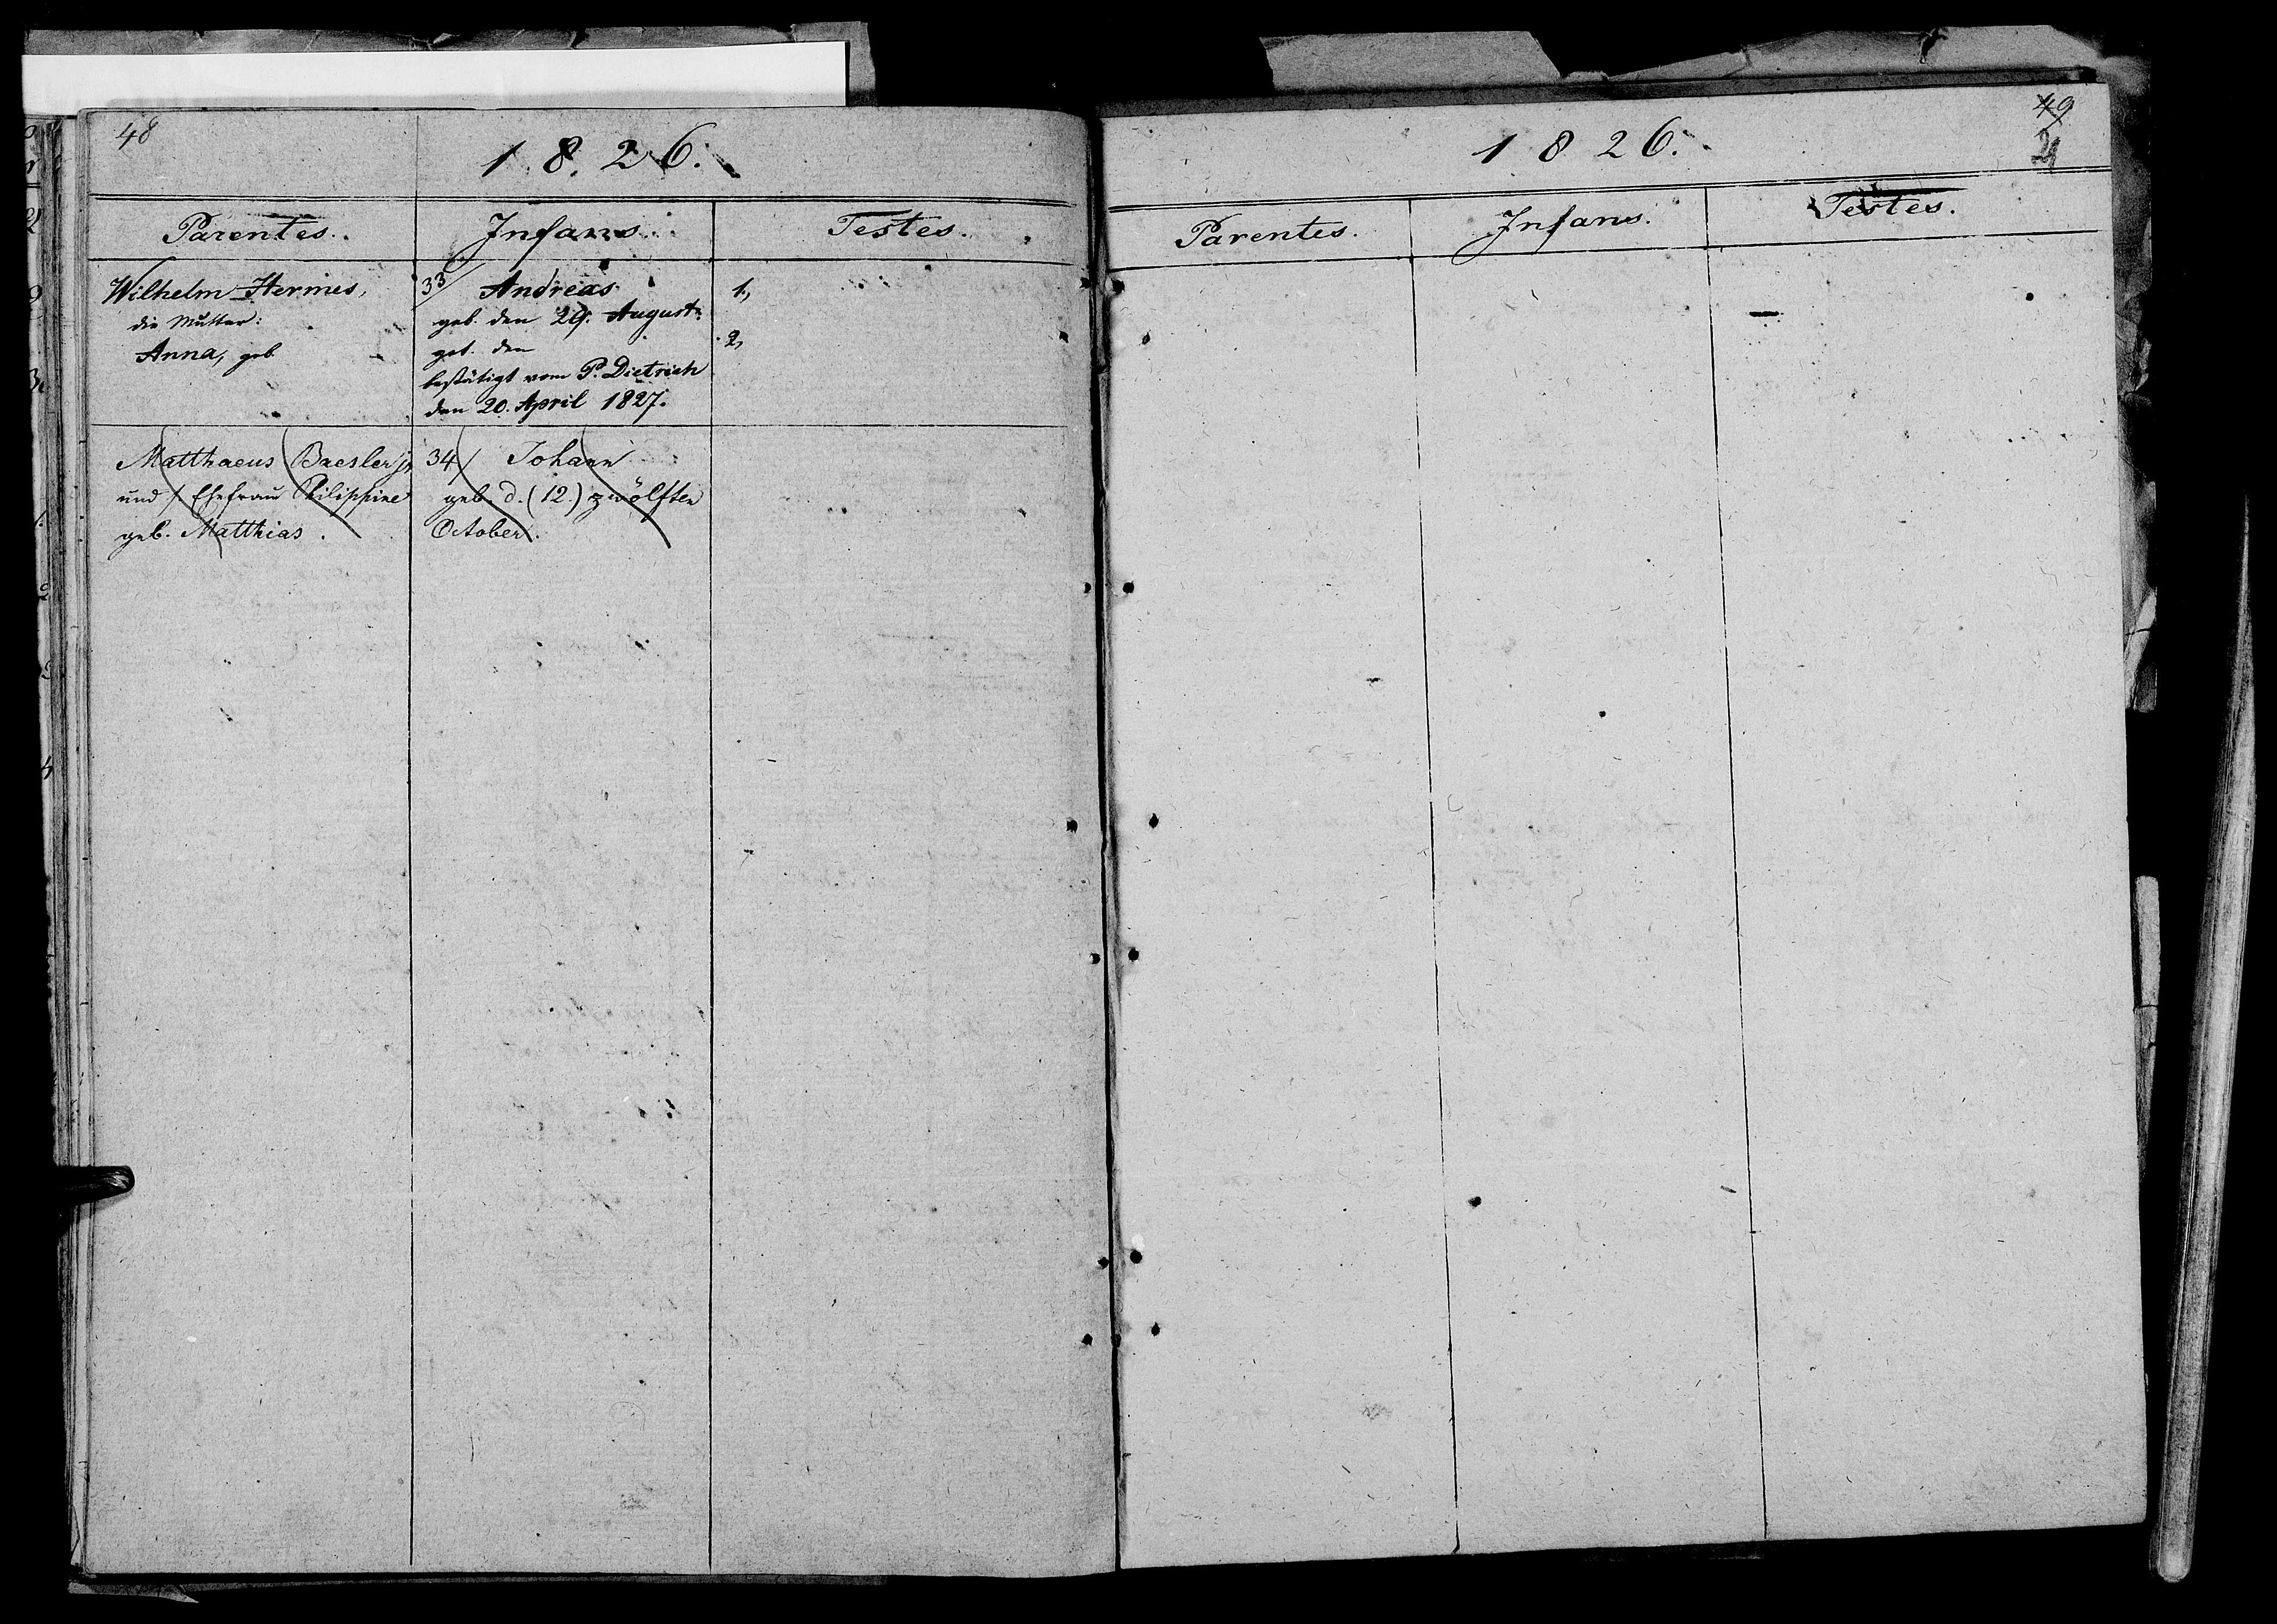 48
1. 8. 2 6.
Parentes. Infans. Testes.
Wilhelm Hermes,
die Mutter:
Anna, geb.
33/ Andreas
geb. den 29. August.
get. den
bestätigt vom P. Dietrich
den 20. April 1827.
1.,
2,
Matthaeus Baesler jr
und s. Ehefrau Philippine
geb. Matthias.
34/ Johann
geb. d. (12.) zwölften
October.
49
1 8 2 6.
Parentes. Infans. Testes.